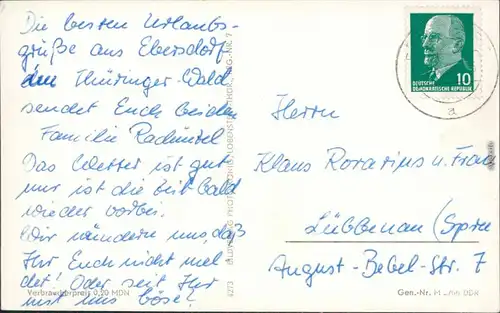 Die besten Urlaubs-
grüße aus Ebersdorf
im Thüringer-Wald
sendet Euch beiden
Familie
Das Wetter ist gut
nur ist die Zeit bald
wieder vorbei.
Wir wundern uns, daß
Ihr Euch nicht mel-
det! Oder seit Ihr
mit uns böse?
Verbraucherpreis 0,20 MDN
6273
10
DEUTSCHE
DEMOKRATISCHE REPUBLIK
a
Herrn
Klaus Rorarius u. Frau
Lübbenau (Spree
August-Bebel-Str. 7
Gen.-Nr.